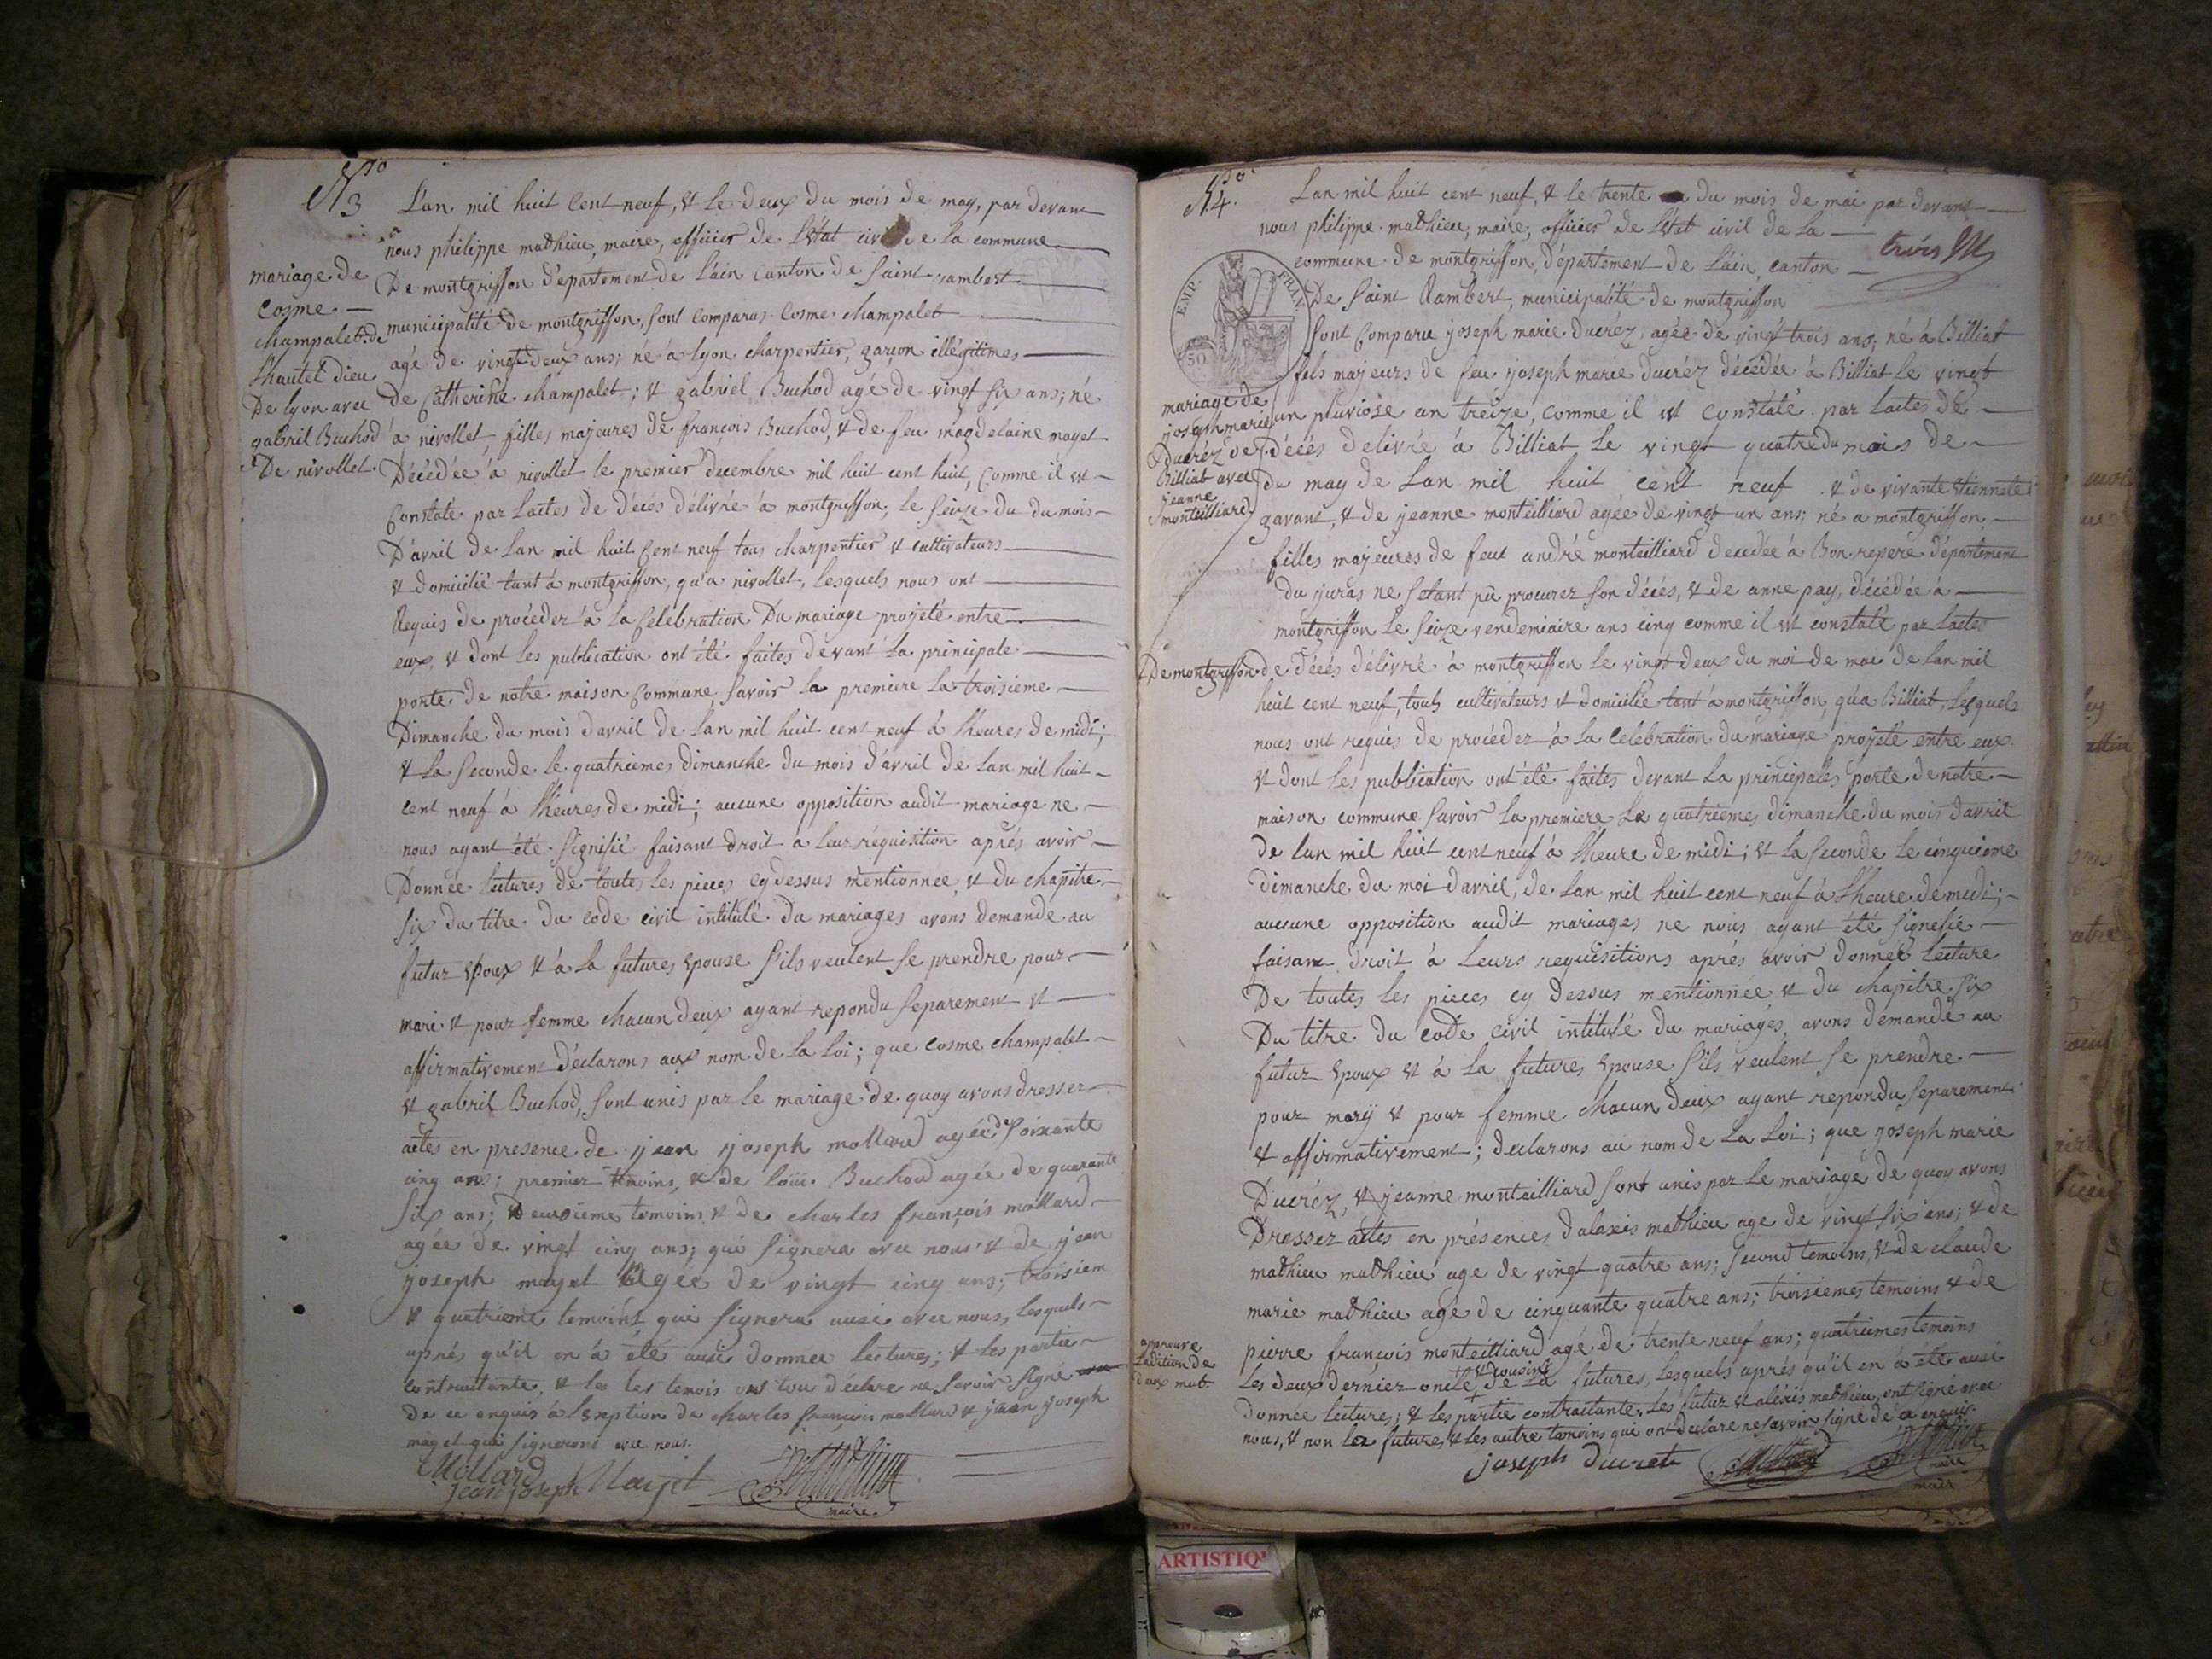 No 3
mariage de
Cosme
champalet de
lhautel dieu
De lyon avec
gabril Buchod
De nivollet.
L'an mil huit Cent neuf, & Le deux du mois de may, par devant
nous philippe mathieu, maire, officier de l'état civil de la commune
De montgriffon département de l'ain Canton de Saint rambert
municipalité de montgriffon, sont Comparus Cosme champalet
agé de vingt deux ans; né a lyon charpentier, garçon illégitimes
de Catherine champalet; & gabriel Buchod agé de vingt six ans; né
a nivollet, filles majeures de françois Buchod, & de feu magdelaine mayet
Décédée a nivollet le premier decembre mil huit cent huit, Comme il est
Constaté par L'actes de décés délivré a montgriffon, le seize du du mois
D'avril de Lan mil huit Cent neuf tous charpentier & cultivateurs
& domicilié tant a montgriffon, qu'a nivollet, lesquels nous ont
Requis de procéder a la Celebration Du mariage projeté entre
eux, & dont les publication ont été faites devant la principale
porte de notre maison Commune, savoir la premiere la troisieme
Dimanche du mois d'avril de Lan mil huit cent neuf á l'heures de midi;
& la seconde le quatriemes dimanche du mois d'avril de Lan mil huit
cent neuf á l'heures de midi; aucune opposition audit mariage ne
nous ayant été signifié faisant droit a leur réquisition aprés avoir
Donnée lectures de toutes les pieces cy dessus mentionnee, & du chapitre
six du titre du code civil intitulé du mariages avons demande au
futur Epoux & á la futures epouse s'ils veulent se prendre pour
mari & pour femme chacun deux ayant repondu separement &
affirmativement déclarons aux nom de la Loi; que cosme champalet
& gabril Buchod, sont unis par le mariage de quoy avons dresser
actes en presence de jean joseph mollard agée soixante
cinq ans; premier temoins, & de Louis Buchod agée de quarante
six ans; Deuxiemes temoins & de charles françois mollard
agée de vingt cinq ans; qui signera avec nous & de jean
joseph mayet Agée de vingt cinq ans; troisiem
& quatrieme temoins qui signera ausi avec nous, lesquels
aprés qu'il en á été ausi donnee lectures; & les partie
contractante, & les les temois ont tou déclare ne savoir signé
de ce enquis á lexeption de charles françois mollard & jean joseph
mayet qui signeront avec nous.
Mollard
jean joseph Maijet
maire.
No 4.
EMP. FRAN.
50.
trois
mariage de
joseph marie
Ducréz de
Billiat avec
jeanne
monteilliard
De montgriffon
Lan mil huit cent neuf, & le trente du mois de mai par devant
nous philippe mathieu, maire, officier de l'état civil de la
commune de montgriffon, département de l'ain, canton
De Saint Rambert, municipalité de montgriffon
sont Comparu joseph marie ducréz, agée de vingt trois ans; né á Billiat
fils majeurs de feu joseph marie ducréz décédée á Billiat le vingt
un pluviose an treize, Comme il est Constaté par L'actes de
décés delivré á Billiat Le vingt quatre du mois de
de may de Lan mil huit cent neuf & de vivante Etiennete
gavant, & de jeanne monteilliard agée de vingt un ans; né a montgriffon,
filles majeures de feut andré monteilliard decedée á Bon repere département
du juras ne setant pû procurez son décés, & de anne pay, décédée á
montgriffon Le seize vendemiaire ans cinq comme il est constaté par l'actes
de décés délivré á montgriffon le vingt deux du moi de mai de Lan mil
huit cent neuf, touts cultivateurs & domicilie tant á montgriffon, qu'a Billiat, Lesquels
nous ont requis de procédez á la Celebration du mariage projeté entre eux
& dont les publication ont été faites devant la principales porte de notre
maison commune savoir la premiere la quatriemes dimanche du mois d'avril
de Lan mil huit cent neuf á l'heure de midi; & la seconde le cinquieme
dimanche du moi d'avril, de Lan mil huit cent neuf á l'heure de midi;
aucune opposition audit mariages ne nous ayant été signefie
faisant droit á Leurs requisitions aprés avoir donnée lecture
De toutes les pieces cy dessus mentionnée & du chapitre six
Du titre du code civil intitulé du mariages, avons demandé au
futur Epoux & á la futures Epouse s'ils veulent se prendre
pour marÿ & pour femme chacun deux ayant repondu separement
& affirmativement; declarons au nom de la Loi; que joseph marie
Ducréz, & jeanne monteilliard sont unis par le mariage de quoy avons
Dressez actes en présences d'alexis mathieu age de vingt six ans; & de
mathieu mathieu age de vingt quatre ans; second temoins, & de claude
marie mathieu age de cinquante quatre ans; troisiemes temoins & de
pierre françois monteilliard agé de trente neuf ans; quatriemes temoins
& cousins
Les deux dérnier oncle de La futures, Lesquels aprés qu'il en á été ausi
donnée lectures; & les partie contractante, Les futur & aléxis mathieu, ont signé avec
nous, & non La futures, & les autre temoins que ont declare ne savoir signe de ce enquis.
approuve
l'adition de
deux mot.
joseph ducret
maire
maire
ARTISTIQ